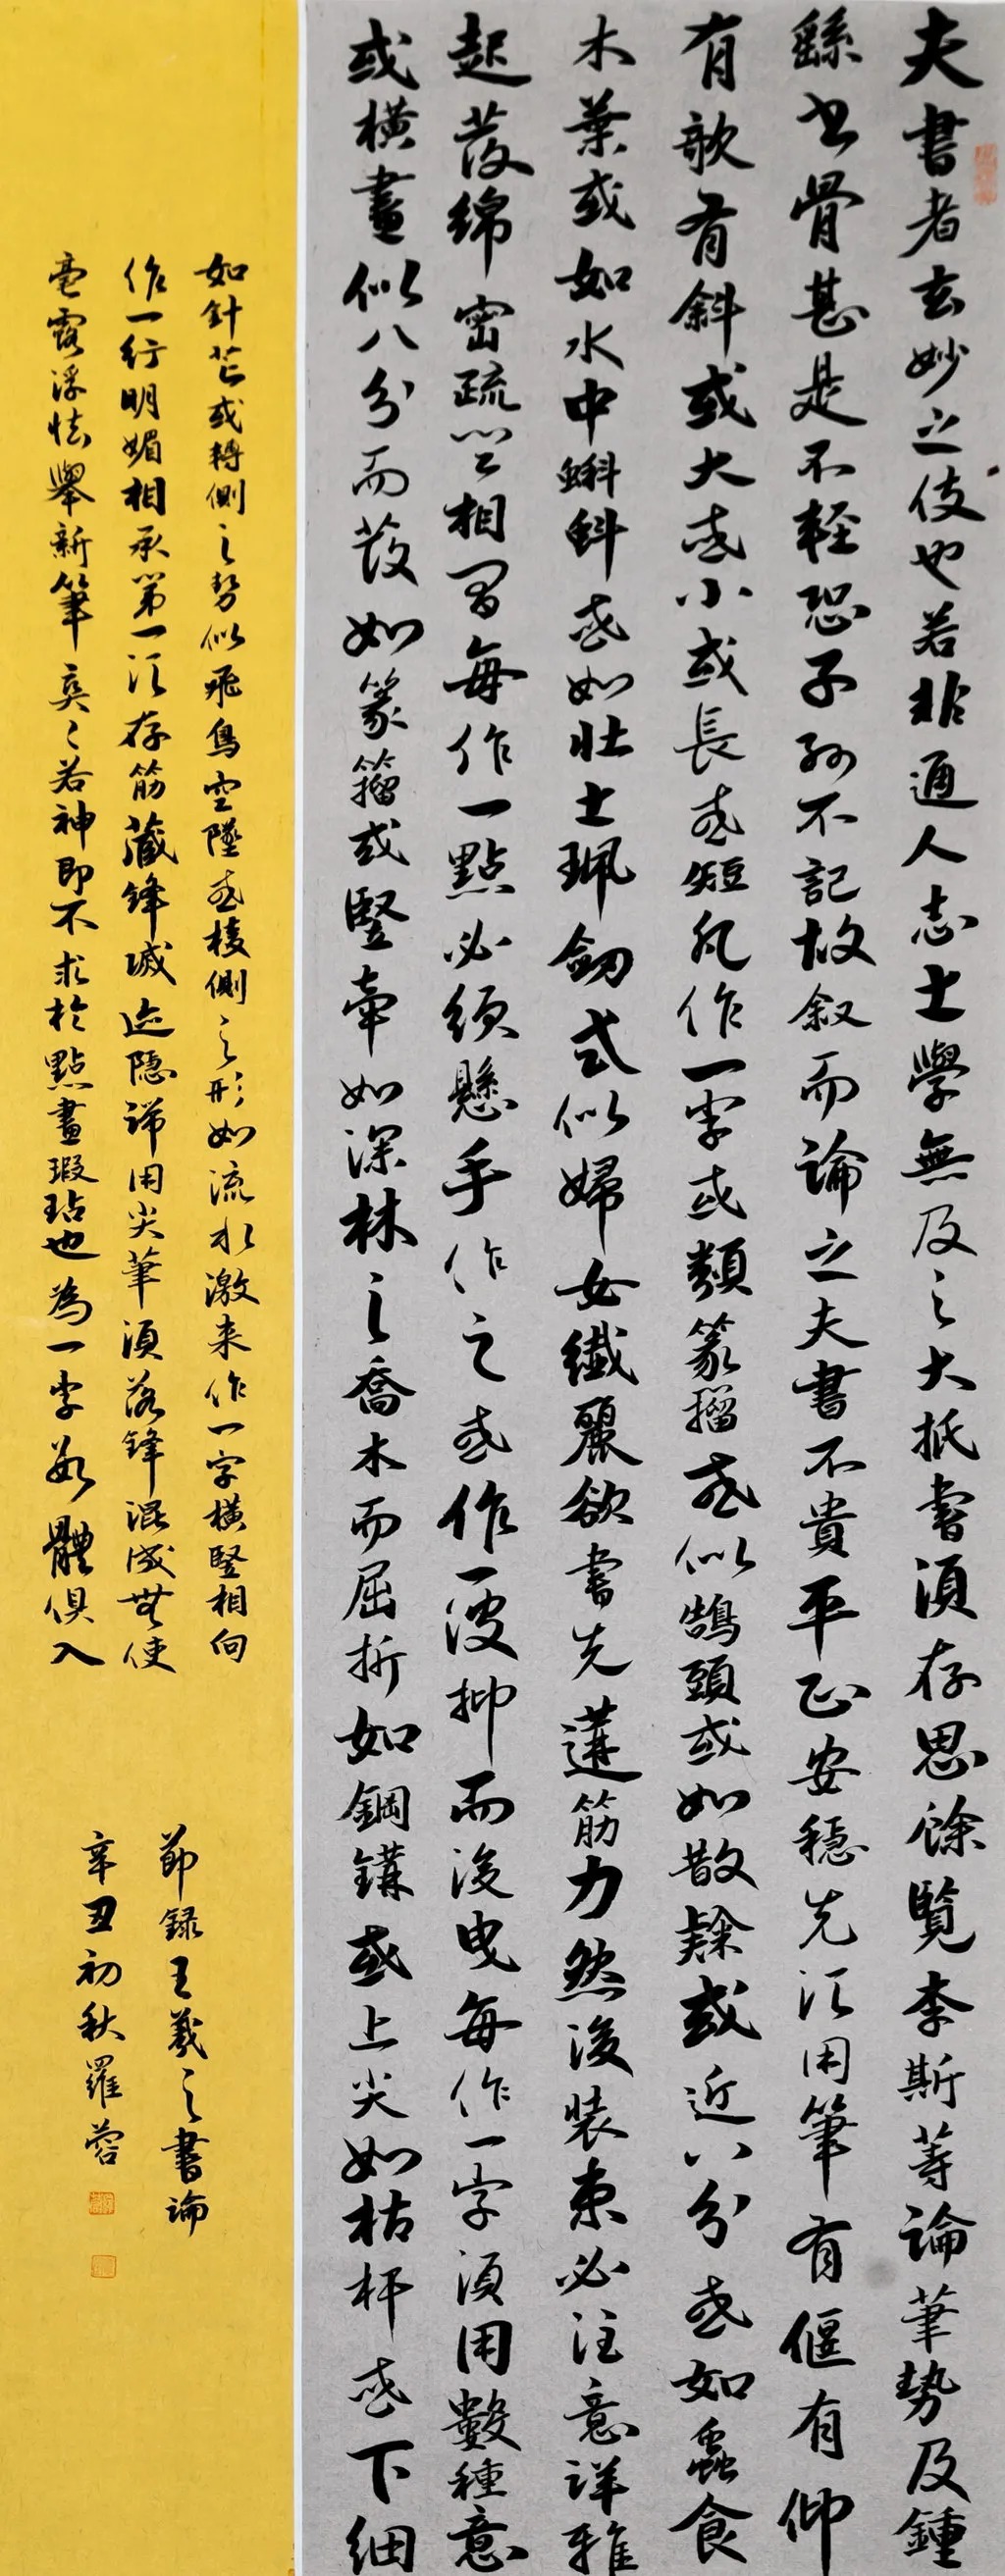 夫書者玄妙之伎也若非通人志士學無及之大抵書須存思餘覽李斯等論筆勢及鍾
繇書骨甚是不輕恐子孫不記故叙而論之夫書不貴平正安穩先須用筆有偃有仰
有欹有斜或大或小或長或短凡作一字或類篆籀或似鵠頭或如散隸或近八分或如蟲食
木葉或如水中蝌蚪或如壯士珮劒或似婦女纖麗欲書先遘筋力然後裝束必注意詳雅
起發綿密疏闊相間每作一點必須懸手作之或作一波抑而後曳每作一字須用數種意
或橫畫似八分而發如篆籀或豎牽如深林之喬木而屈折如鋼鉤或上尖如枯杆或下細
如針芒或轉側之勢似飛鳥空墜或棱側之形如流水激来作一字橫豎相向
作一行明媚相承第一須存筋藏鋒滅迹隱端用尖筆須落鋒混成無使
毫露浮怯舉新筆爽爽若神即不求於點畫瑕玷也為一字數體俱入
節録王羲之書論
辛丑初秋羅蓉